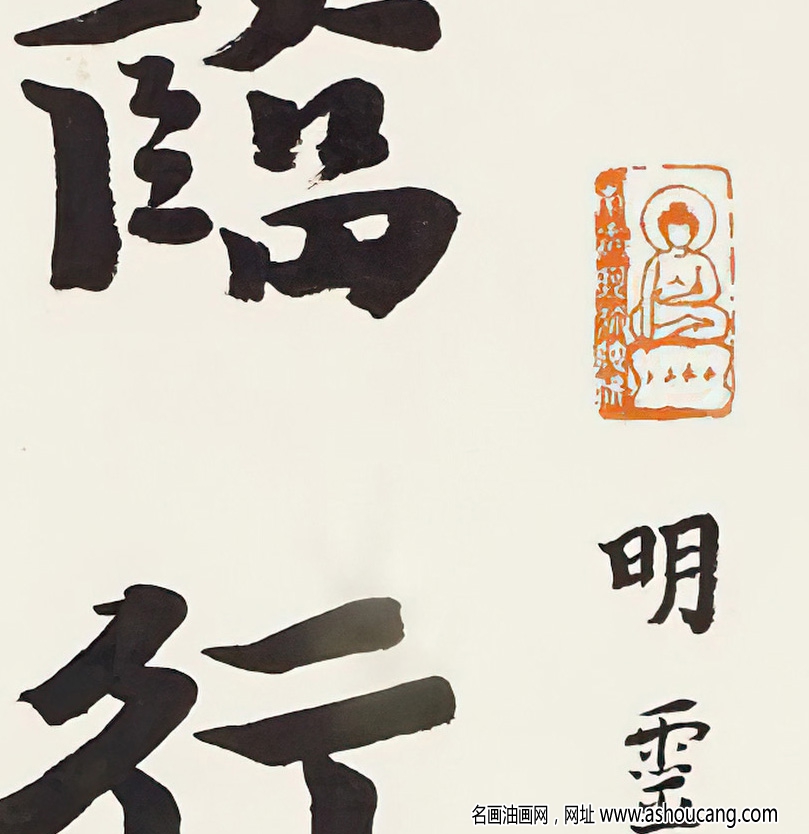 明靈
臨行
名画油画网，网址 www.ashoucang.com